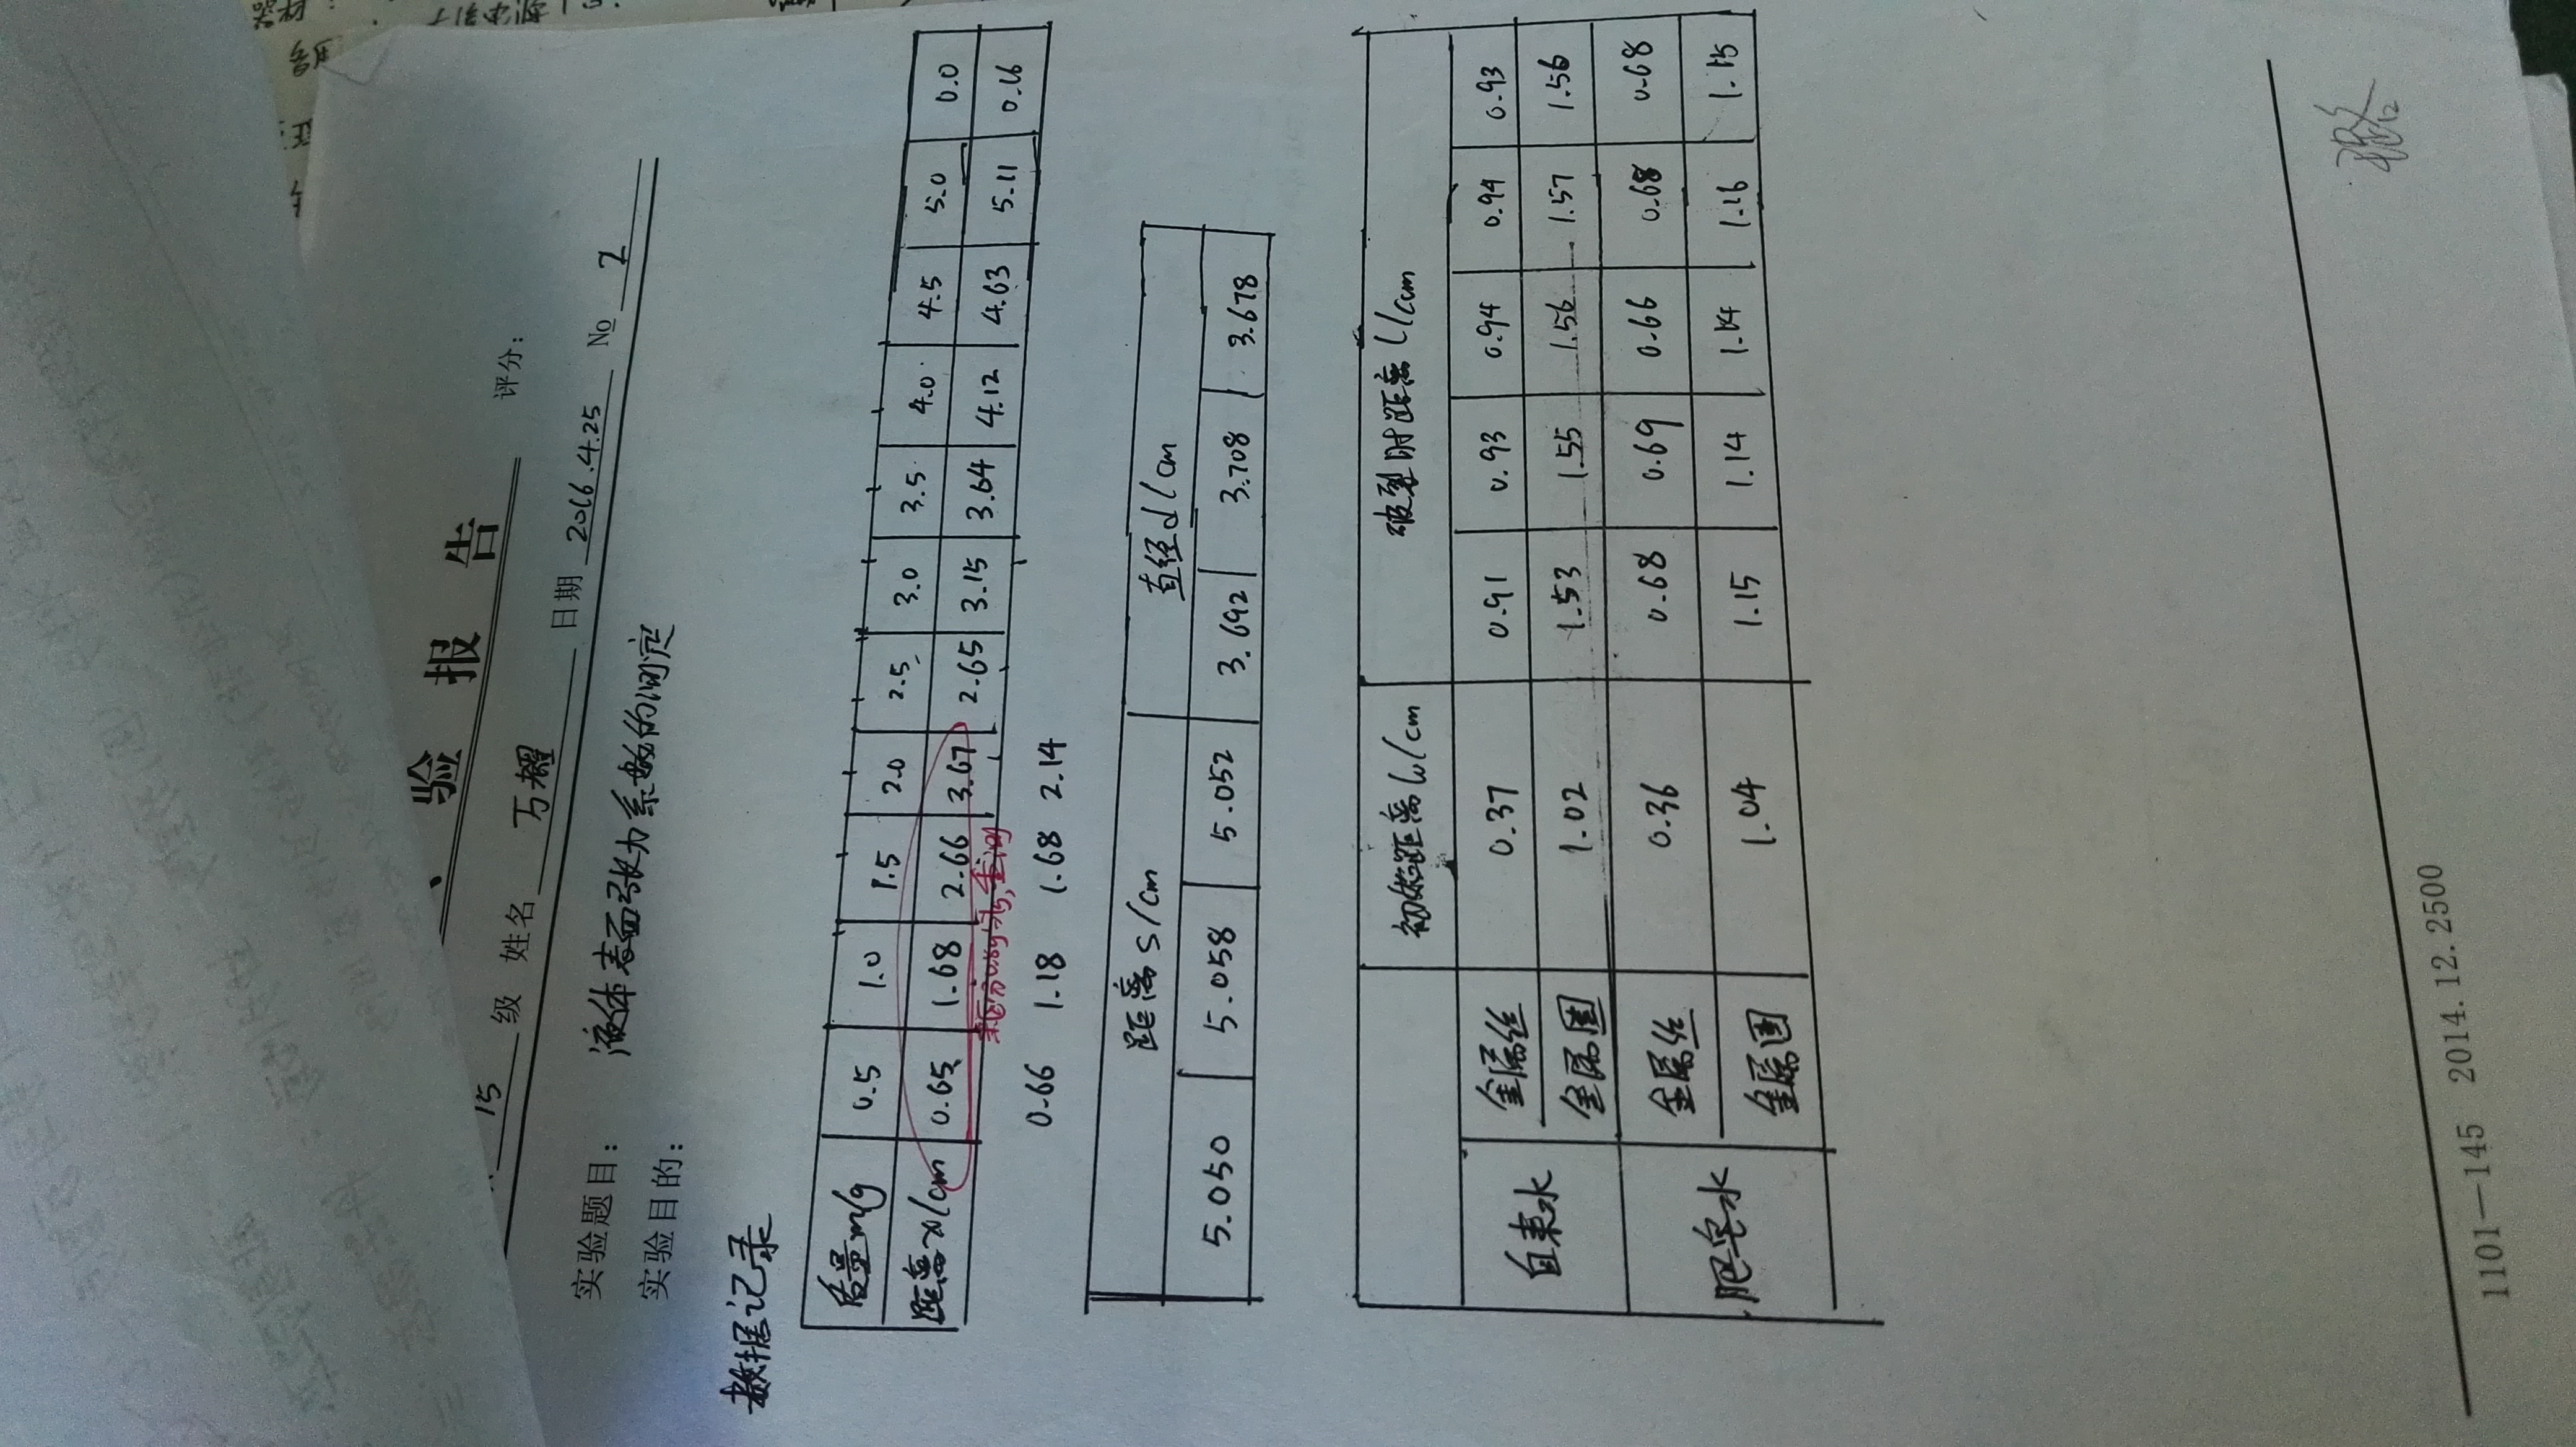 验 报 告
评分:
15 级 姓名 丁耀 日期 2016.4.25 No 2
实验题目: 液体表面张力系数的测定
实验目的:
数据记录
质量m/g 0.5 1.0 1.5 2.0 2.5 3.0 3.5 4.0 4.5 5.0 0.0
距离x/cm 0.65 1.68 2.66 3.67 2.65 3.15 3.64 4.12 4.63 5.11 0.16
0.66 1.18 1.68 2.14
距离s/cm 直径d/cm
5.050 5.058 5.052 3.692 3.708 3.678
初始距离l₀/cm 破裂时距离l/cm
自来水 金属丝 0.37 0.91 0.93 0.94 0.94 0.93
金属圈 1.02 1.53 1.55 1.56 1.57 1.56
肥皂水 金属丝 0.36 0.68 0.69 0.66 0.68 0.68
金属圈 1.04 1.15 1.14 1.14 1.16 1.15
1101—145 2014.12.2500